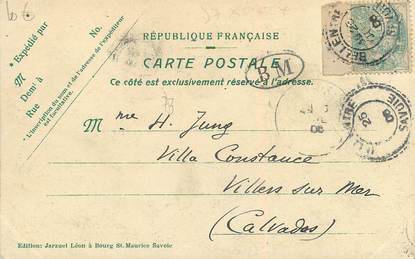 RÉPUBLIQUE FRANÇAISE
CARTE POSTALE
Ce côté est exclusivement réservé à l'adresse.
Expédié par
M
Demt à
Rue
No.
* L'inscription du nom et de l'adresse de l'expéditeur
est facultative.
B M
SAVOIE
Mme H. Jung
Villa Constance
Villers sur Mer
(Calvados)
Edition: Jarzuel Léon à Bourg St. Maurice Savoie